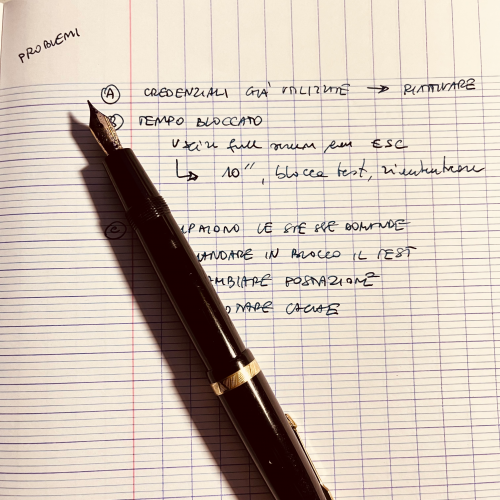 PROBLEMI
Ⓐ CREDENZIALI GIÀ UTILIZZATE → RIATTIVARE
Ⓑ TEMPO BLOCCATO
Uscire full screen con ESC
↳ 10", blocca test, rientrare
Ⓒ LE STESSE DOMANDE
MANDARE IN BLOCCO IL TEST
CAMBIARE POSTAZIONE
CACHE